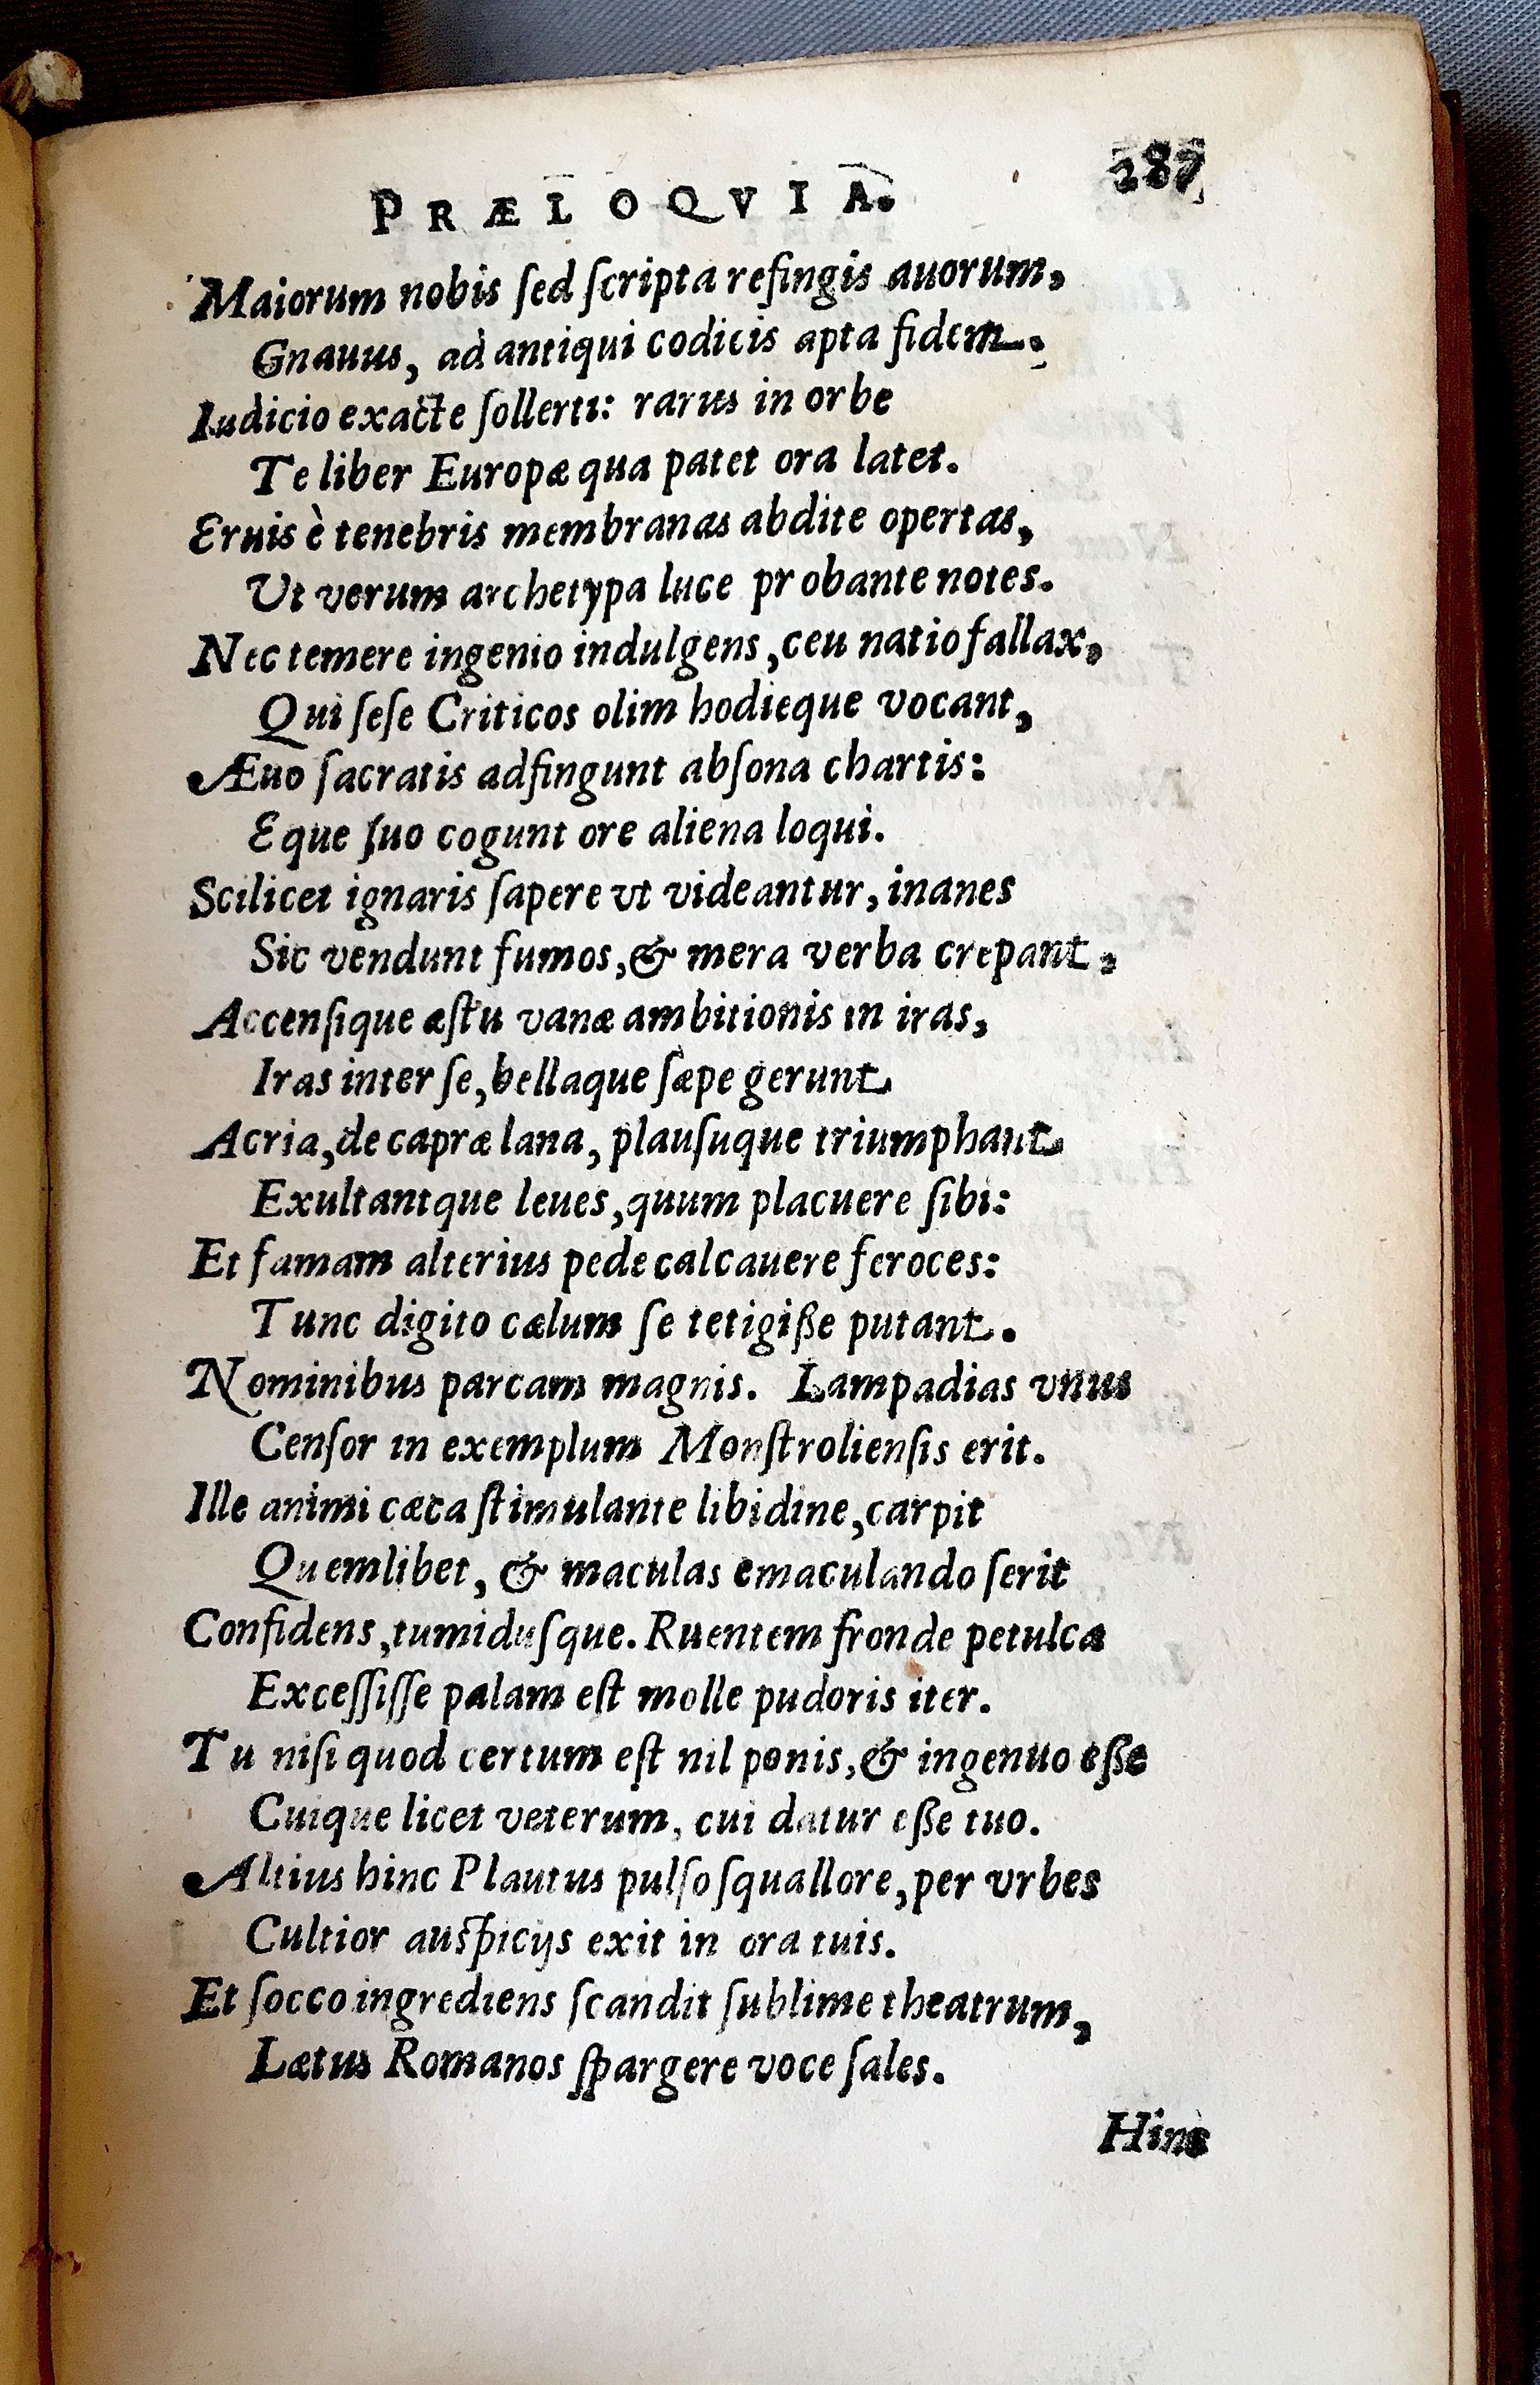 PRÆLOQVIA. 287
Maiorum nobis ſed ſcripta refingis auorum,
Gnauus, ad antiqui codicis apta fidem.
Iudicio exacte ſollerti: rarus in orbe
Te liber Europæ qua patet ora latet.
Eruis è tenebris membranas abdite opertas,
Ut verum archetypa luce probante notes.
Nec temere ingenio indulgens, ceu natio fallax,
Qui ſeſe Criticos olim hodieque vocant,
Æuo ſacratis adfingunt abſona chartis:
Eque ſuo cogunt ore aliena loqui.
Scilicet ignaris ſapere vt videantur, inanes
Sic vendunt fumos, & mera verba crepant,
Accenſique æſtu vanæ ambitionis in iras,
Iras inter ſe, bellaque ſæpe gerunt
Acria, de capræ lana, plauſuque triumphant
Exultantque leues, quum placuere ſibi:
Et famam alterius pede calcauere feroces:
Tunc digito cælum ſe tetigiße putant.
Nominibus parcam magnis. Lampadias vnus
Cenſor in exemplum Monſtrolienſis erit.
Ille animi cæca ſtimulante libidine, carpit
Quemlibet, & maculas emaculando ſerit
Confidens, tumiduſque. Ruentem fronde petulca
Exceſſiſſe palam eſt molle pudoris iter.
Tu niſi quod certum eſt nil ponis, & ingenuo eße
Cuique licet veterum, cui datur eße tuo.
Altius hinc Plautus pulſo ſquallore, per vrbes
Cultior auſpicijs exit in ora tuis.
Et ſocco ingrediens ſcandit ſublime theatrum,
Lætus Romanos ſpargere voce ſales.